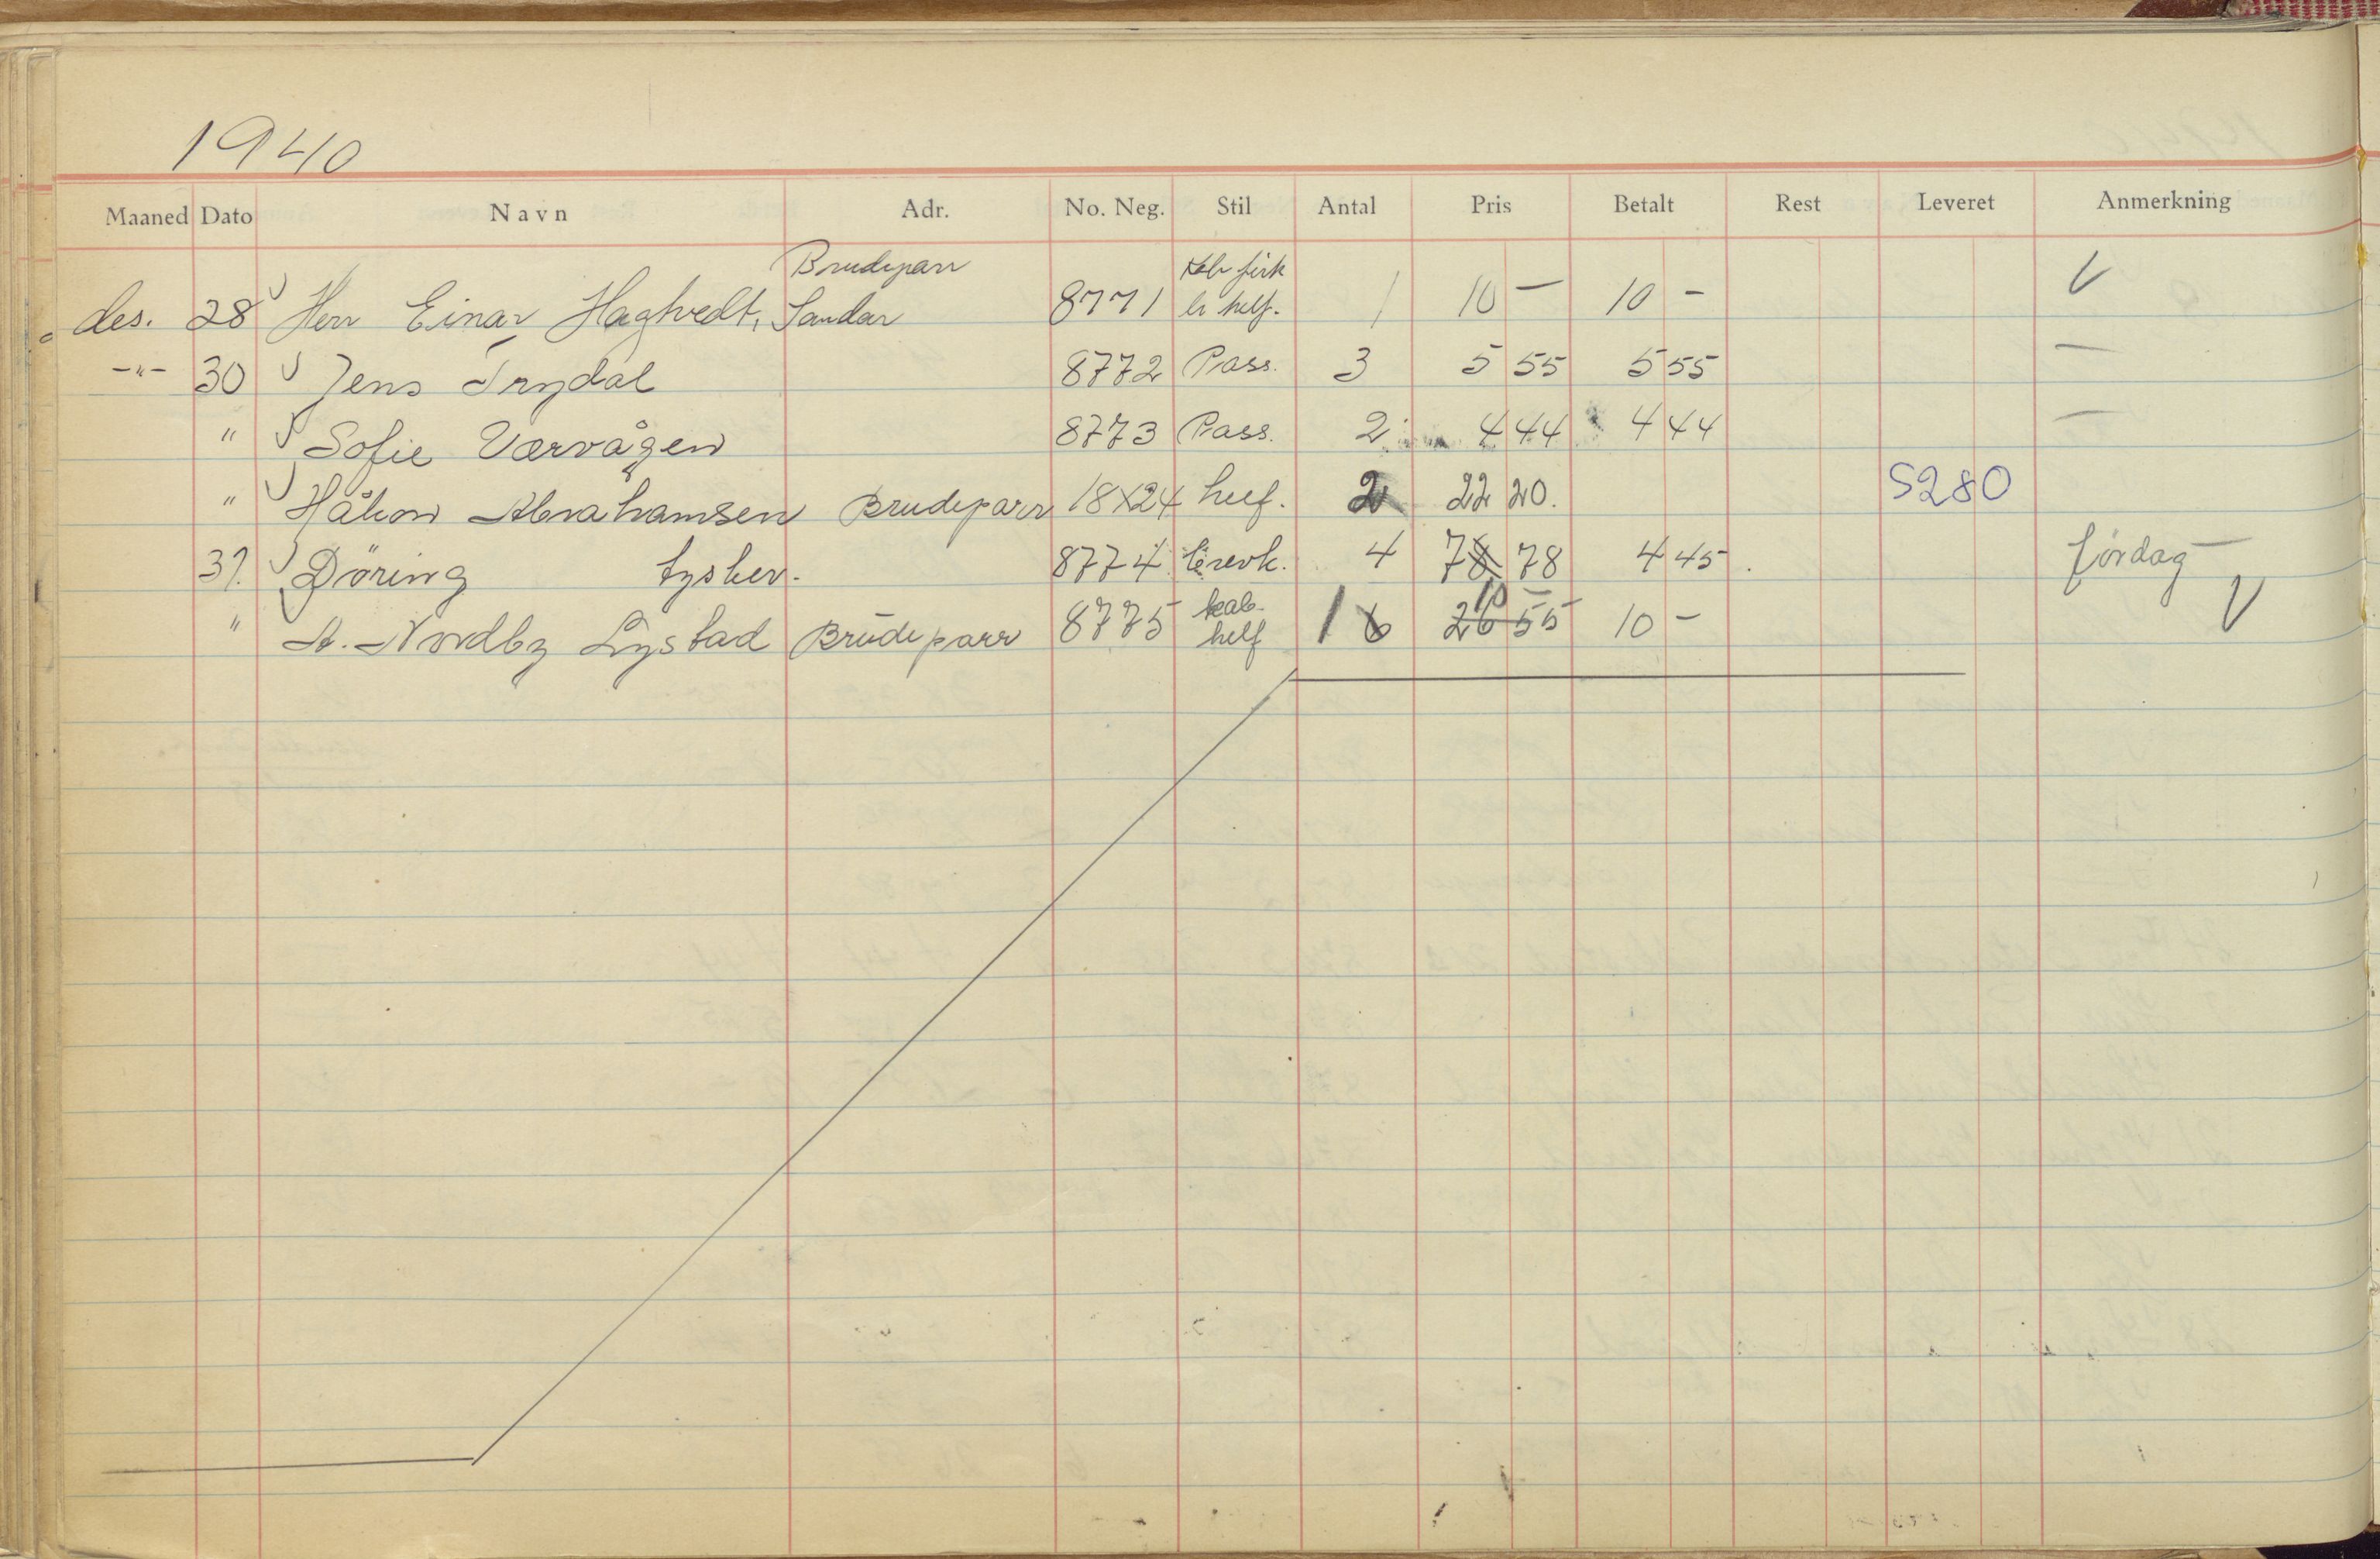 1940
Maaned Dato Navn Adr. No. Neg. Stil Antal Pris Betalt Rest Leveret Anmerkning
Brudeparr
des. 28 Herr Einar Hagtvedt, Sandar 8771 helf. 1 10 — 10 -
-"- 30 Jens Trydal 8772 Pass. 3 5 55 5 55 —
" Sofie Værvågen 8773 Pass. 2 4 44 4 44 —
" Håkon Abrahamsen Brudeparr 18x24 huf. 2 22 20. S280
31. Döring tysker. 8774 brevk. 4 78 78 4 45. Lördag
" A. Nordby Lystad Brudeparr 8775 kab- helf 1 6 26 55 10 — 10 -